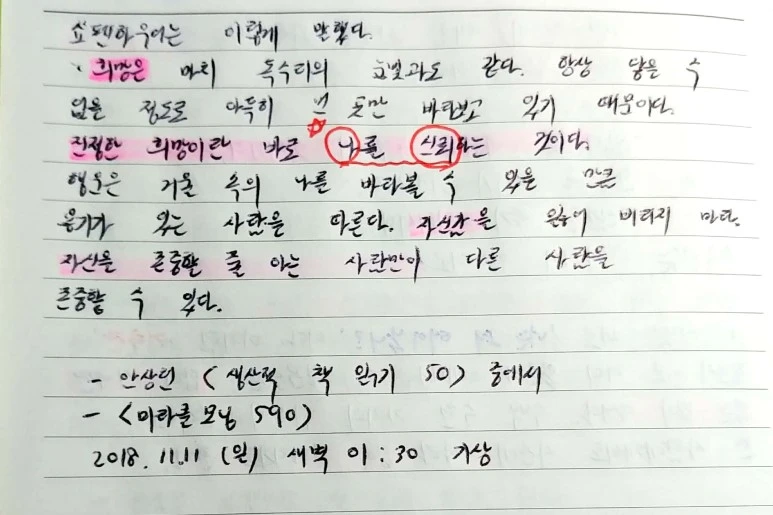 쇼펜하우어는 이렇게 말했다.
· 희망은 마치 독수리의 눈빛과도 같다. 항상 닿을 수
없을 정도로 아득히 먼 곳만 바라보고 있기 때문이다.
진정한 희망이란 바로 나를 신뢰하는 것이다.
행운은 거울 속의 나를 바라볼 수 있을 만큼
용기가 있는 사람을 따른다. 자신감을 잃어버리지 마라.
자신을 존중할 줄 아는 사람만이 다른 사람을
존중할 수 있다.
- 안상헌 <생산적 책 읽기 50> 중에서
- <미라클 모닝 590>
2018. 11. 11 (일) 새벽 01:30 기상